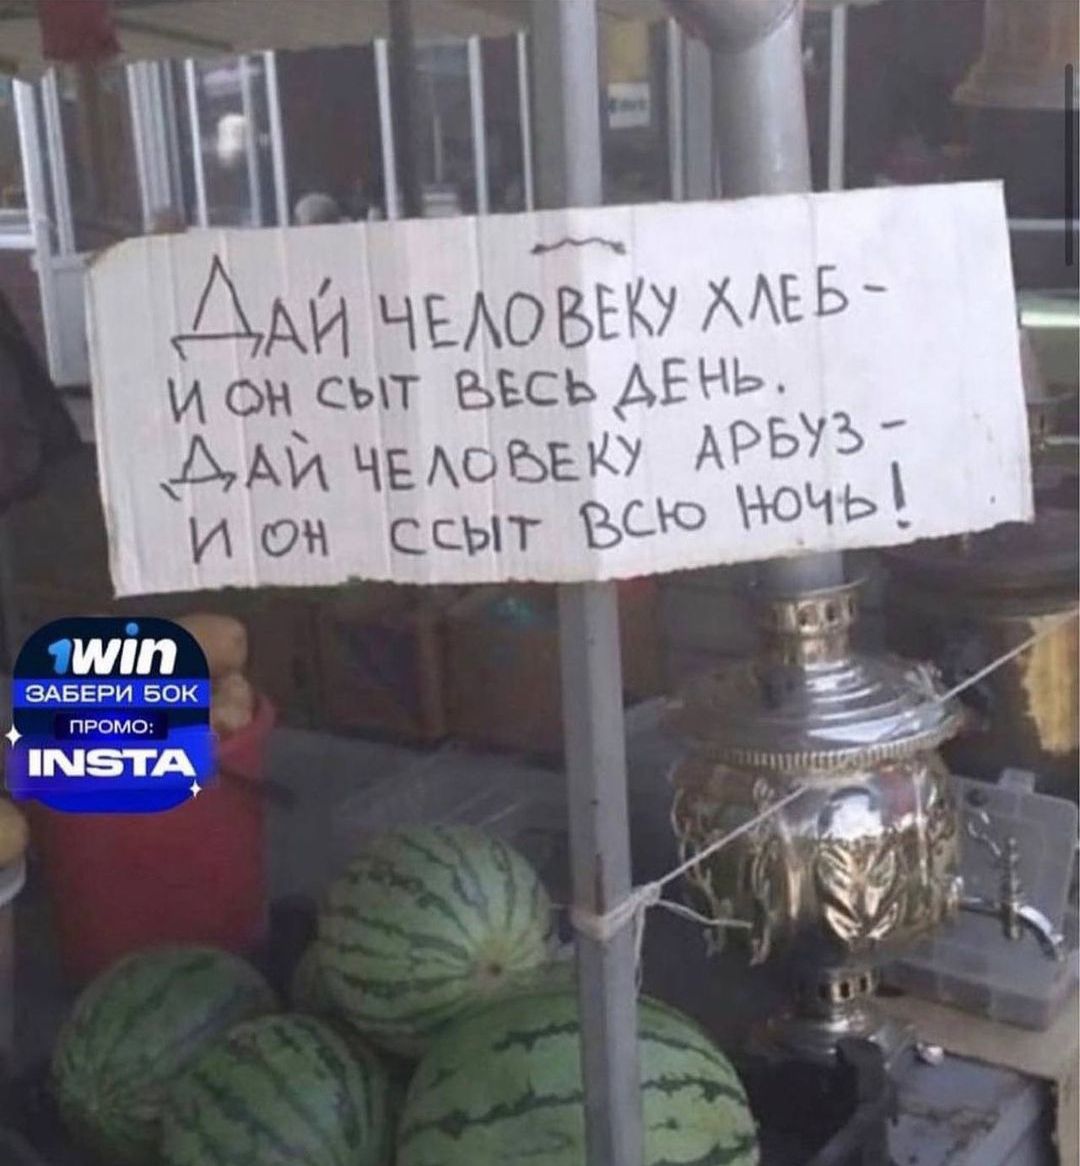 ДАЙ ЧЕЛОВЕКУ ХЛЕБ -
И ОН СЫТ ВЕСЬ ДЕНЬ.
ДАЙ ЧЕЛОВЕКУ АРБУЗ -
И ОН ССЫТ ВСЮ НОЧЬ!
1win
ЗАБЕРИ 50К
ПРОМО:
INSTA